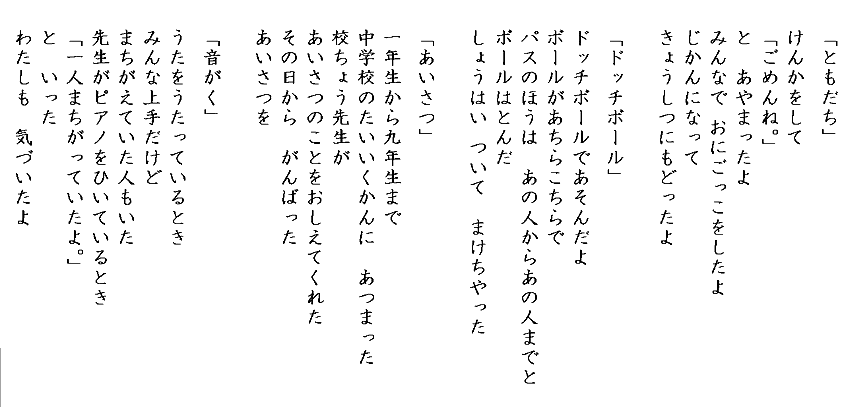 「ともだち」
けんかをして
「ごめんね。」
と　あやまったよ
みんなで　おにごっこをしたよ
じかんになって
きょうしつにもどったよ
「ドッチボール」
ドッチボールであそんだよ
ボールがあちらこちらで
パスのほうは　あの人からあの人までと
ボールはとんだ
しょうはい　ついて　まけちやった
「あいさつ」
一年生から九年生まで
中学校のたいいくかんに　あつまった
校ちょう先生が
あいさつのことをおしえてくれた
その日から　がんばった
あいさつを
「音がく」
うたをうたっているとき
みんな上手だけど
まちがえていた人もいた
先生がピアノをひいているとき
「一人まちがっていたよ。」
と　いった
わたしも　気づいたよ